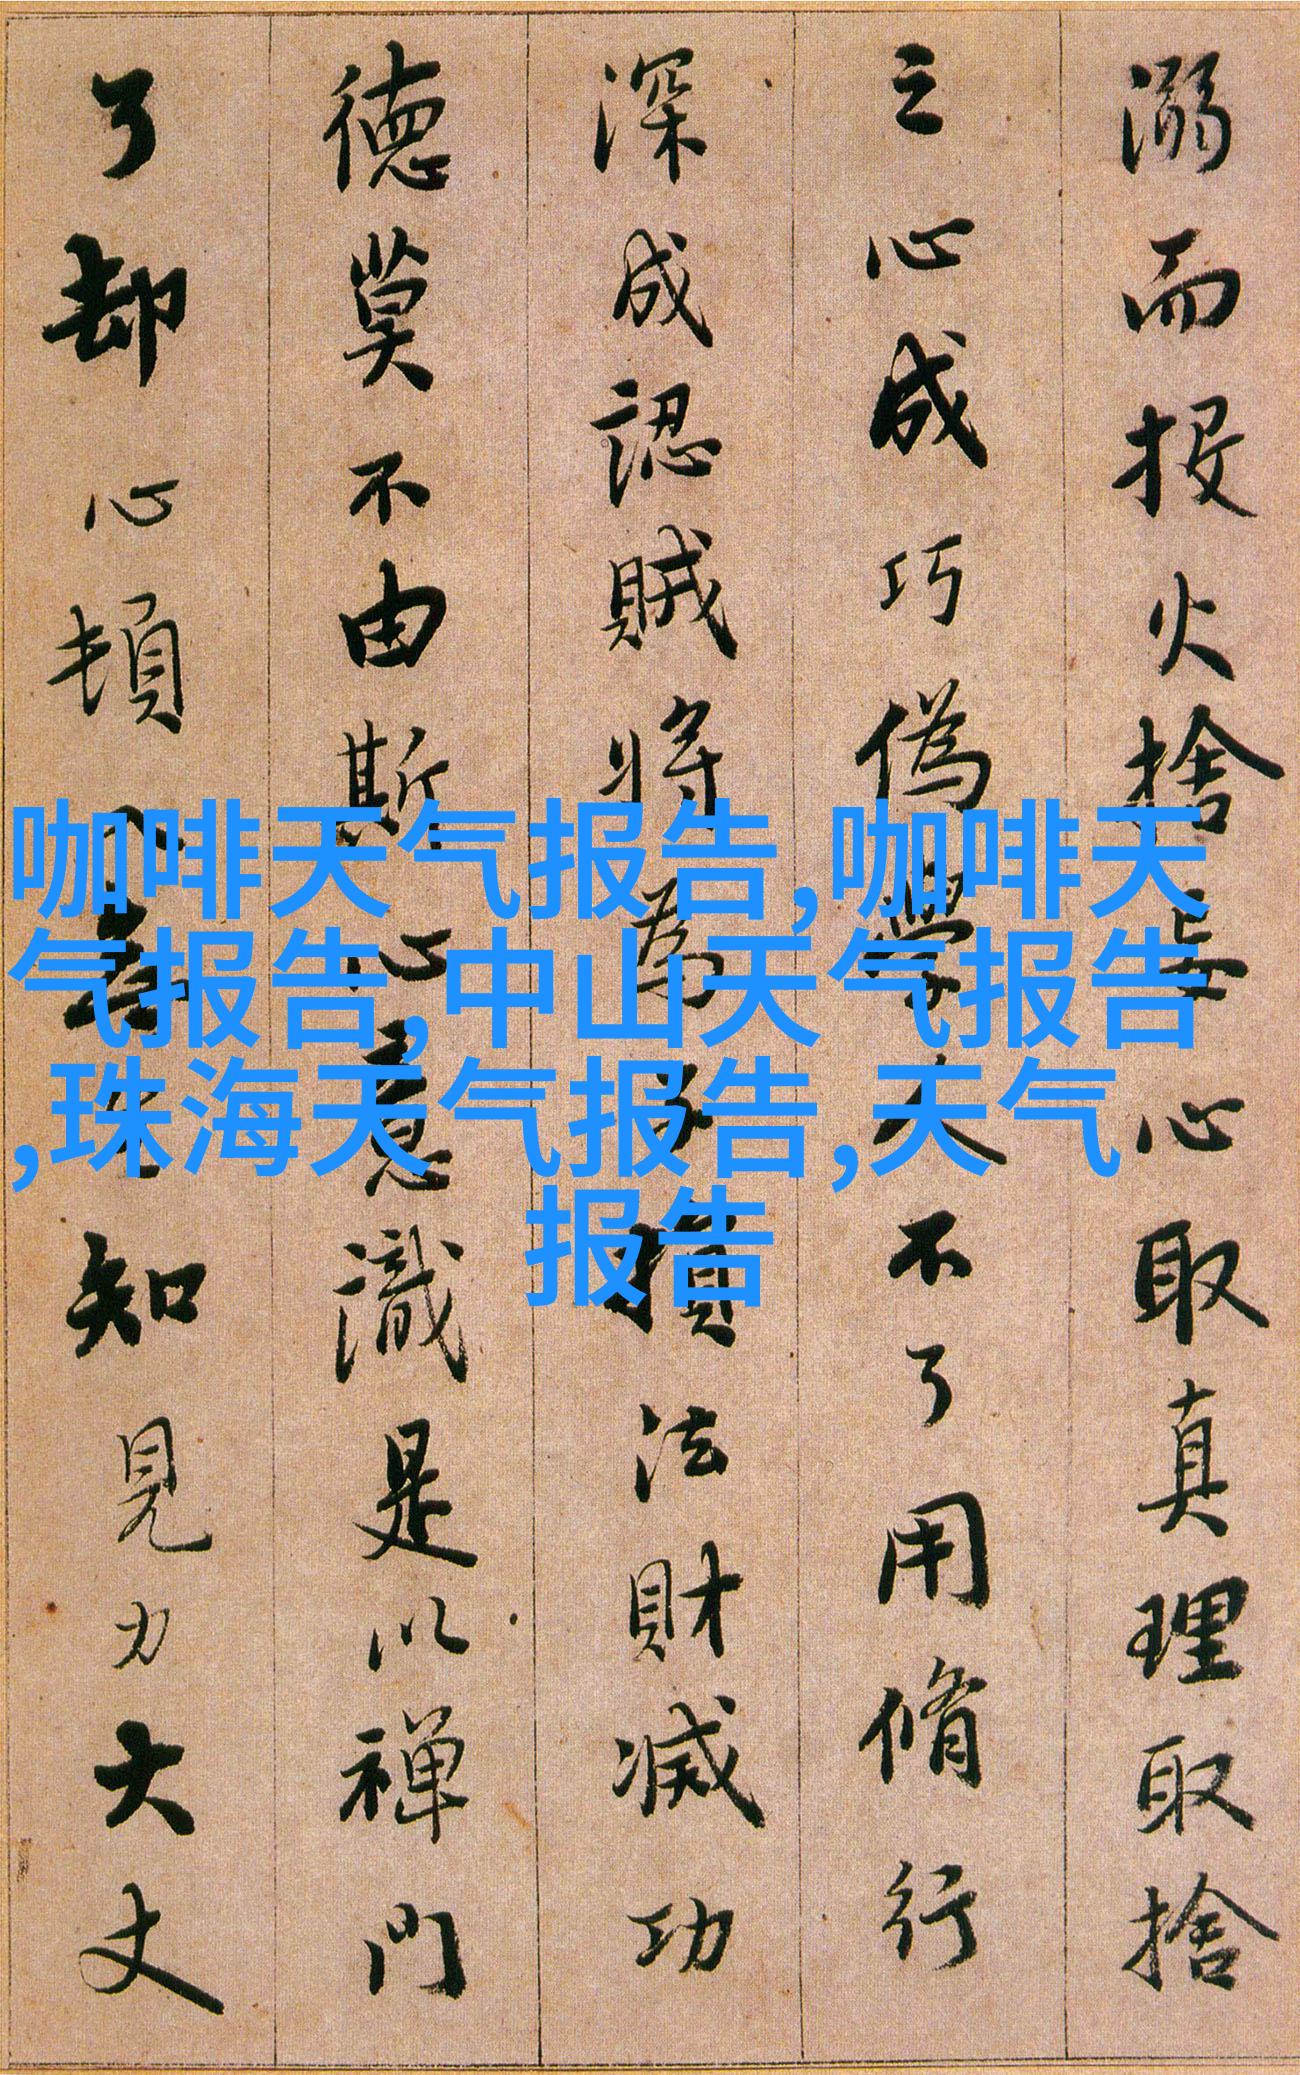 溺而投火捨妄心取真理取捨
之心成巧偽學人不了用脩行
深成認賊將為子損法財滅功
德莫不由斯心意識是以禅門
了却心頓入無生知見力大丈
咖啡天气报告,咖啡天
气报告,中山天气报告
,珠海天气报告,天气
报告